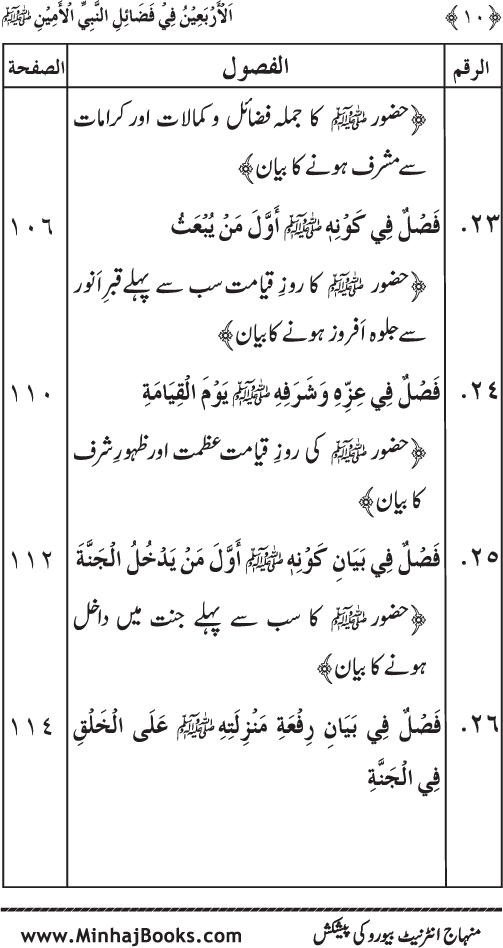 ﴿١٠﴾ اَلْأَرْبَعِيْنُ فِيْ فَضَائِلِ النَّبِيِّ الْأَمِيْنِ ﷺ
الرقم الفصول الصفحة
﴿حضور ﷺ کا جملہ فضائل و کمالات اور کرامات
سے مشرف ہونے کا بیان﴾
٢٣. فَصْلٌ فِي كَوْنِهِ ﷺ أَوَّلَ مَنْ يُبْعَثُ ١٠٦
﴿حضور ﷺ کا روزِ قیامت سب سے پہلے قبرِ اَنور
سے جلوہ اَفروز ہونے کا بیان﴾
٢٤. فَصْلٌ فِي عِزِّهِ وَشَرَفِهِ ﷺ يَوْمَ الْقِيَامَةِ ١١٠
﴿حضور ﷺ کی روزِ قیامت عظمت اور ظہورِ شرف
کا بیان﴾
٢٥. فَصْلٌ فِي بَيَانِ كَوْنِهِ ﷺ أَوَّلَ مَنْ يَدْخُلُ الْجَنَّةَ ١١٢
﴿حضور ﷺ کا سب سے پہلے جنت میں داخل
ہونے کا بیان﴾
٢٦. فَصْلٌ فِي بَيَانِ رِفْعَةِ مَنْزِلَتِهِ ﷺ عَلَى الْخَلْقِ ١١٤
فِي الْجَنَّةِ
منہاج انٹرنیٹ بیورو کی پیشکش www.MinhajBooks.com